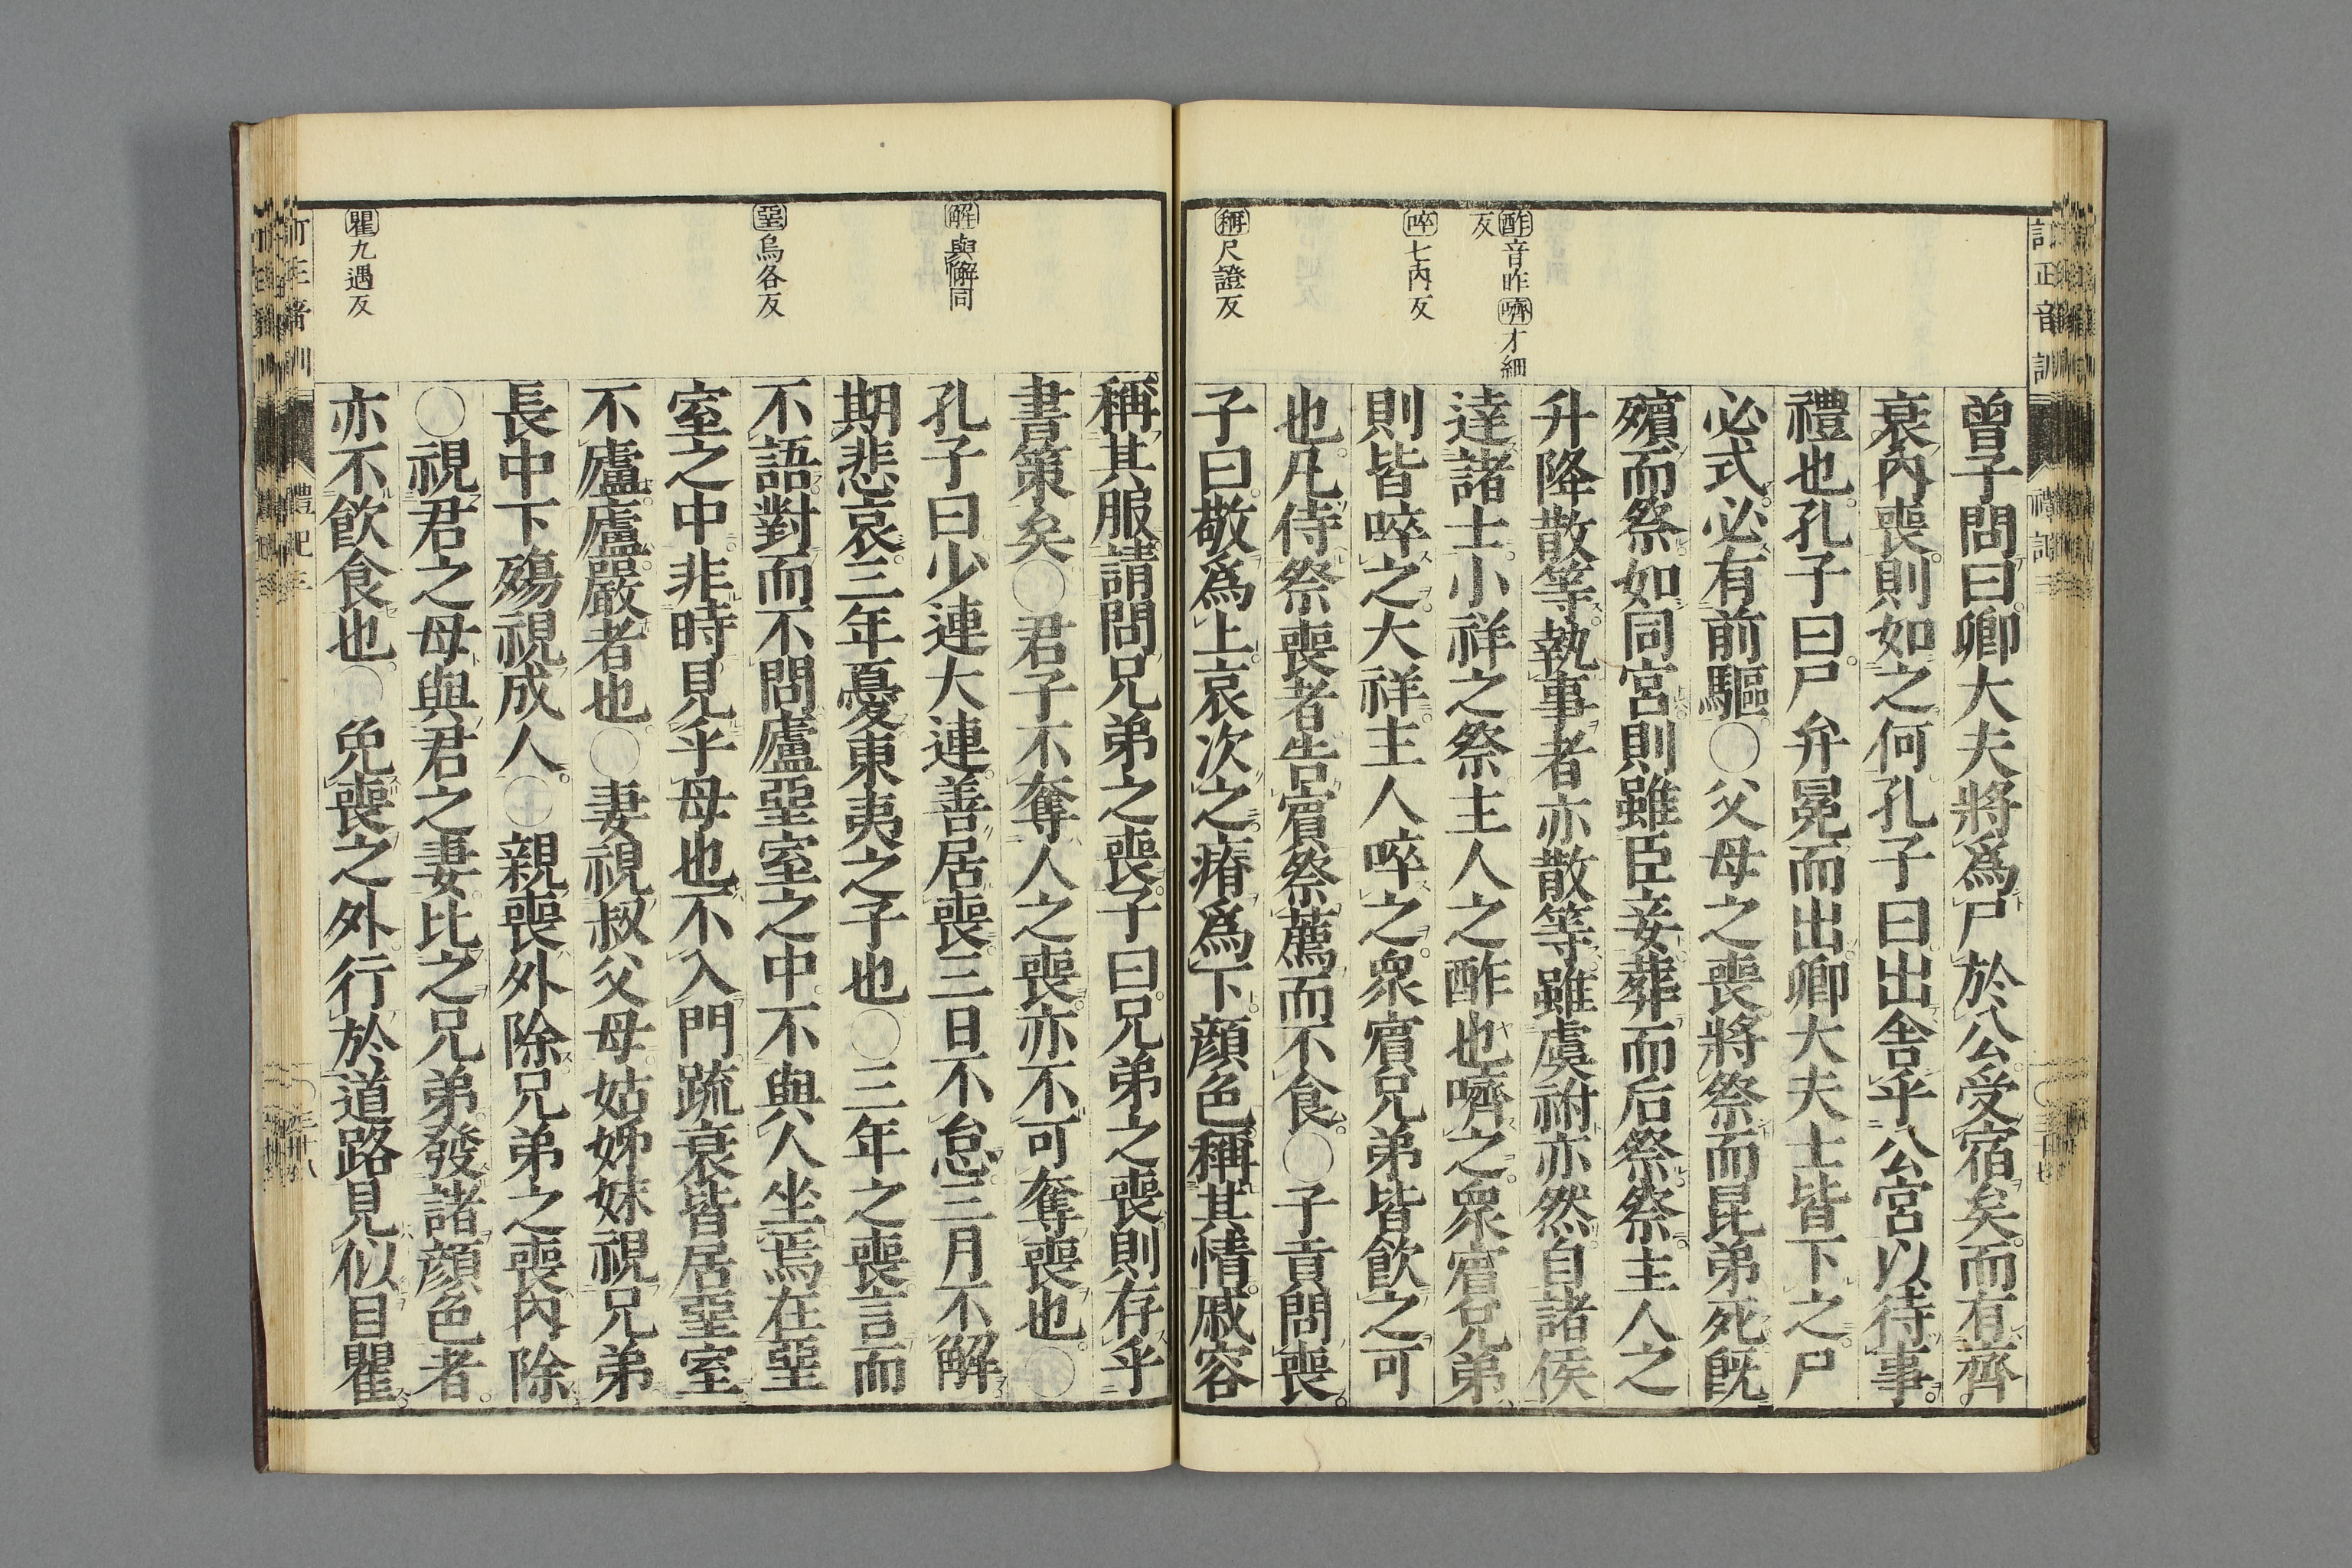 曾子問曰卿大夫將爲尸於公受宿矣而有齊
衰內喪則如之何孔子曰出舍乎公宮以待事
禮也孔子曰尸弁冕而出卿大夫士皆下之尸
必式必有前驅○父母之喪將祭而昆弟死旣
殯而祭如同宮則雖臣妾葬而后祭祭主人之
升降散等執事者亦散等雖虞祔亦然自諸侯
達諸士小祥之祭主人之酢也嚌之衆賓兄弟
則皆啐之大祥主人啐之衆賓兄弟皆飮之可
也凡侍祭喪者吿賓祭薦而不食○子貢問喪
子曰敬爲上哀次之瘠爲下顏色稱其情戚容
酢音昨 嚌才細
反
啐七內反
稱尺證反
稱其服請問兄弟之喪子曰兄弟之喪則存乎
書策矣○君子不奪人之喪亦不可奪喪也○
孔子曰少連大連善居喪三日不怠三月不解
期悲哀三年憂東夷之子也○三年之喪言而
不語對而不問廬堊室之中不與人坐焉在堊
室之中非時見乎母也不入門疏衰皆居堊室
不廬廬嚴者也○妻視叔父母姑姊妹視兄弟
長中下殤視成人○親喪外除兄弟之喪內除
○視君之母與君之妻比之兄弟發諸顏色者
亦不飮食也○免喪之外行於道路見似目瞿
解與懈同
堊烏各反
瞿九遇反
訂正音訓
禮記三